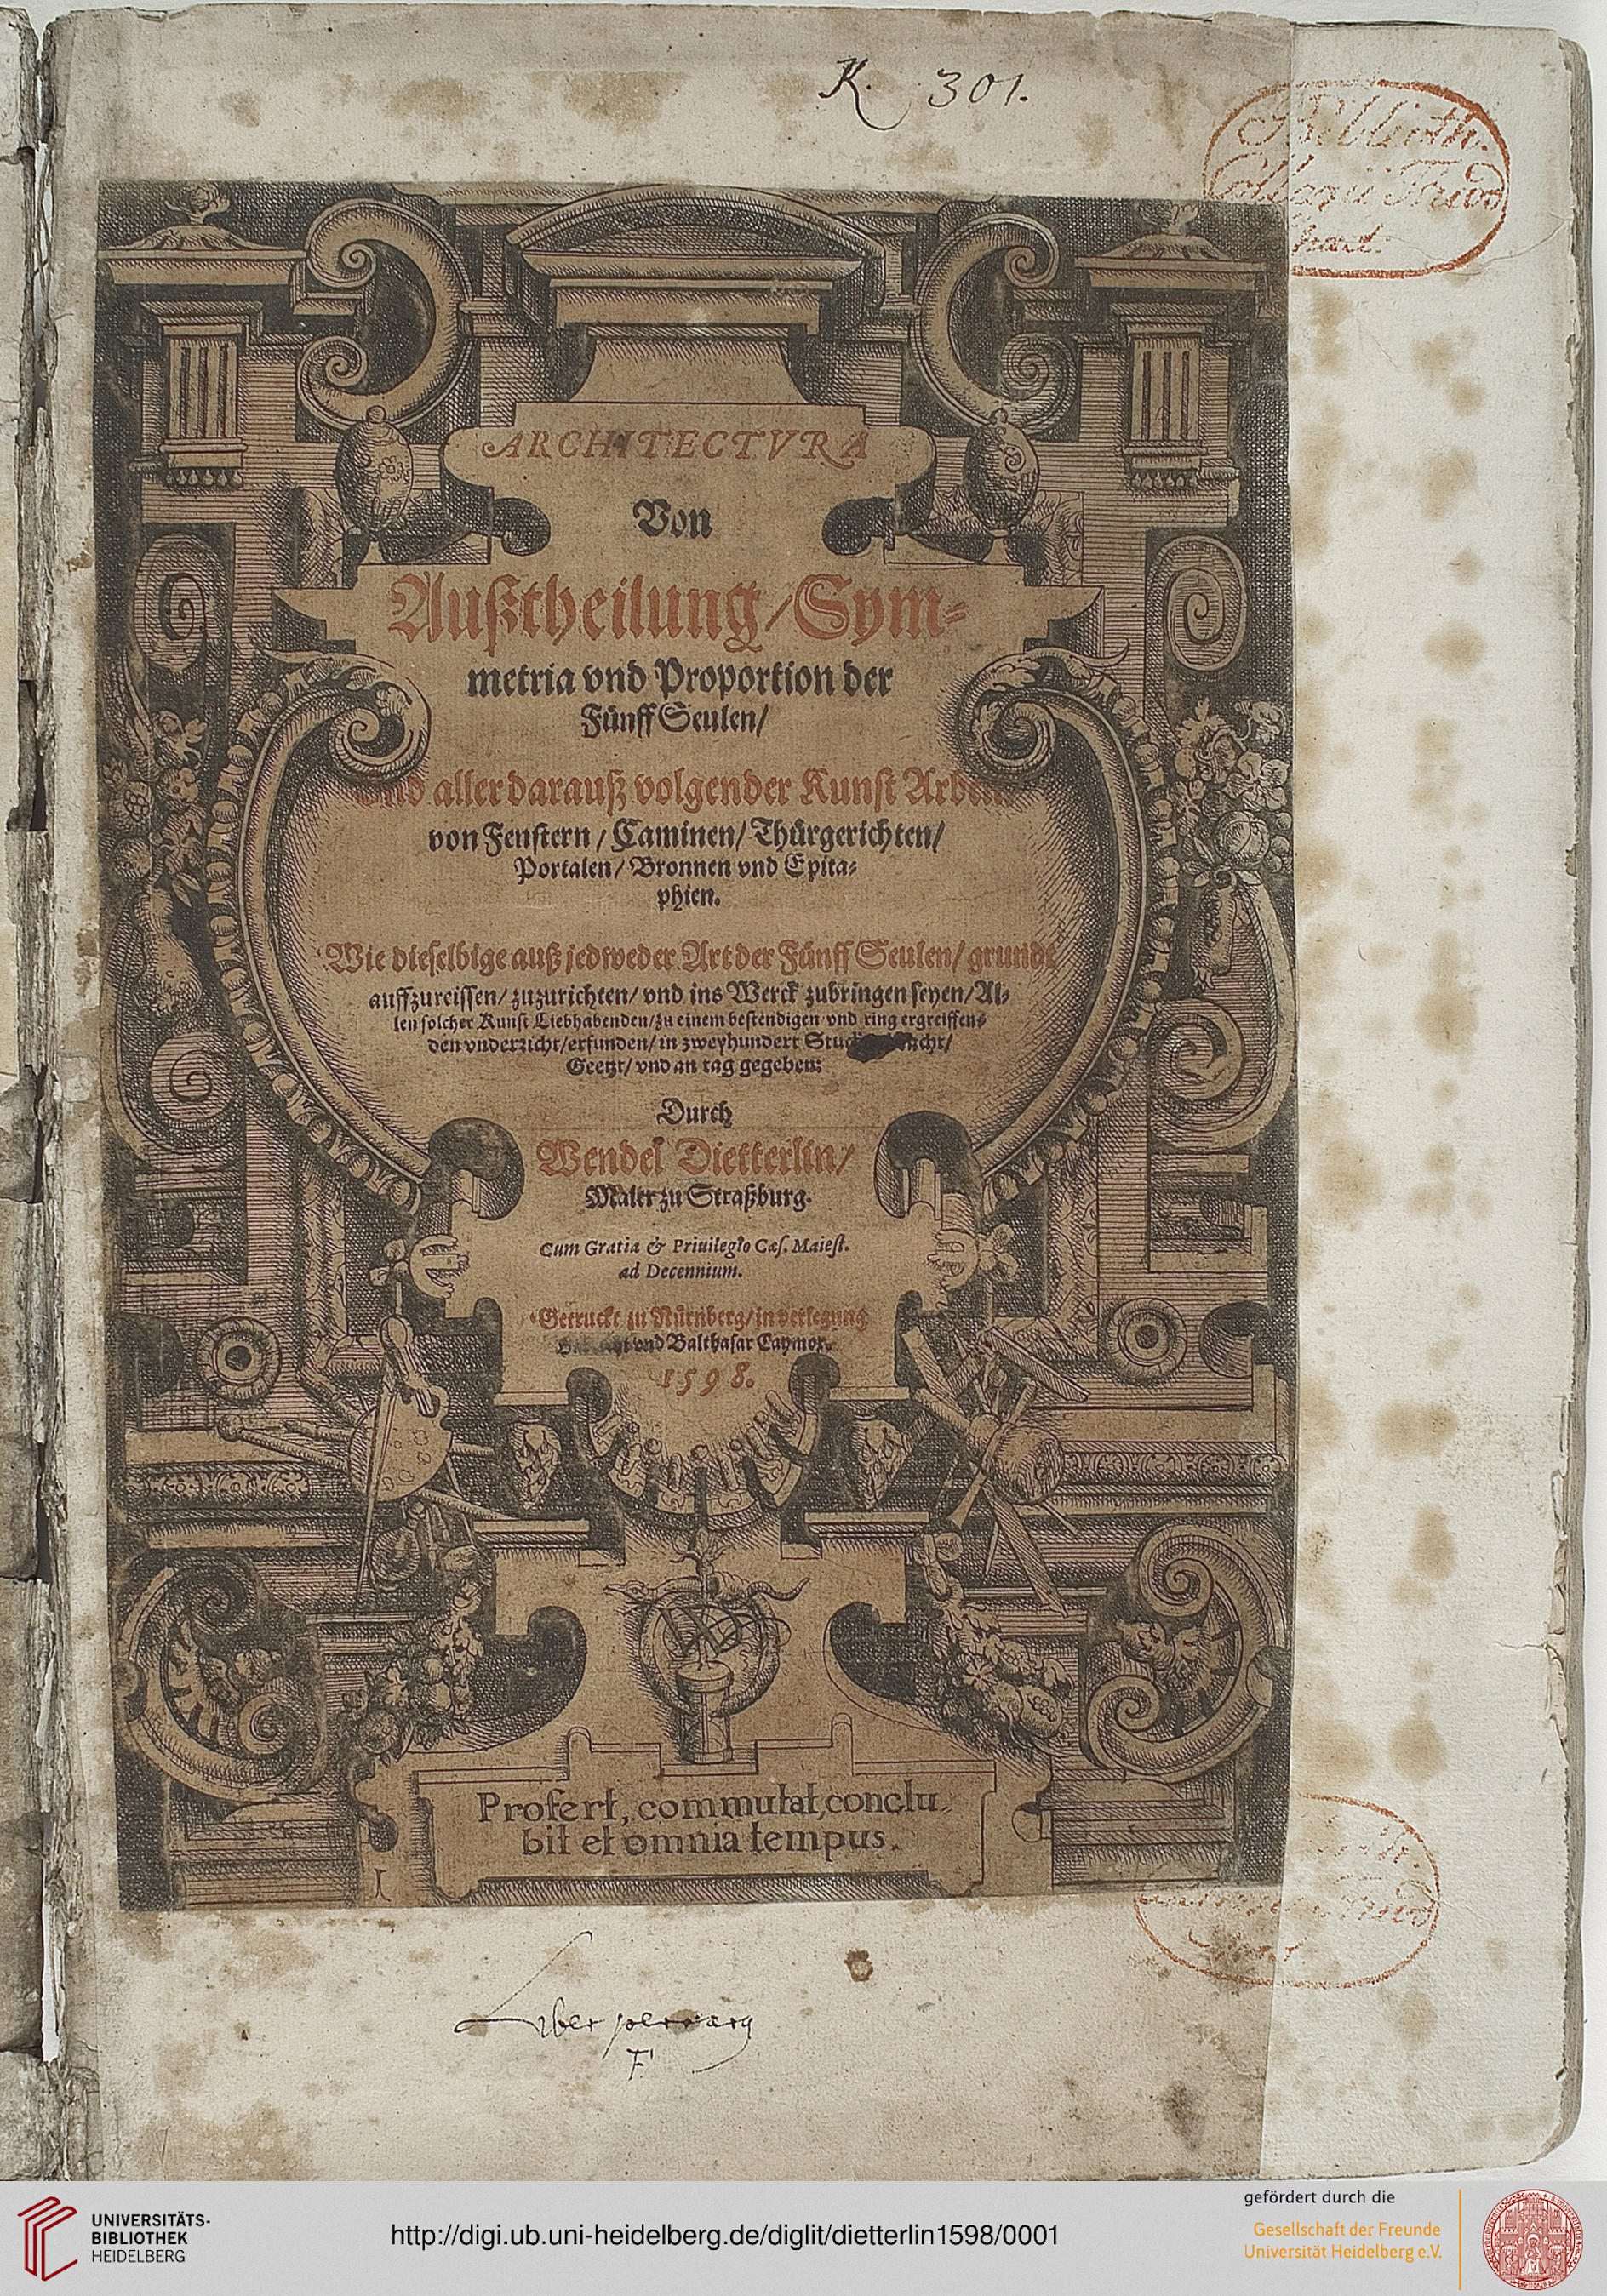 K. 301.
Biblioth.
ARCHITECTVRA
Von
Außtheilung/ Sym-
metria vnd Proportion der
Fünff Seulen/
aller darauß volgender Kunst
von Fenstern/ Caminen/ Thürgerichten/
Portalen/ Bronnen vnd Epita-
phien.
Wie dieselbige auß jedweder Art der Fünff Seulen/ grundt
auffzureissen/ zuzurichten/ vnd ins Werck zubringen seyen/ Al-
len solcher Kunst Liebhabenden/ zu einem bestendigen vnd ring ergreiffen-
den vnderricht/ erfunden/ in zweyhundert
Geetzt/ vnd an tag gegeben:
Durch
Wendel Dietterlin/
Maler zu Straßburg.
Cum Gratia & Priuilegio Cæs. Maiest.
ad Decennium.
Getruckt zu Nürnberg/ in verlegung
vnd Balthasar Caymox.
1598.
Profert, commutat, conclu
bit et omnia tempus.
I
Liber
F
UNIVERSITÄTS-
BIBLIOTHEK
HEIDELBERG
http://digi.ub.uni-heidelberg.de/diglit/dietterlin1598/0001
gefördert durch die
Gesellschaft der Freunde
Universität Heidelberg e.V.